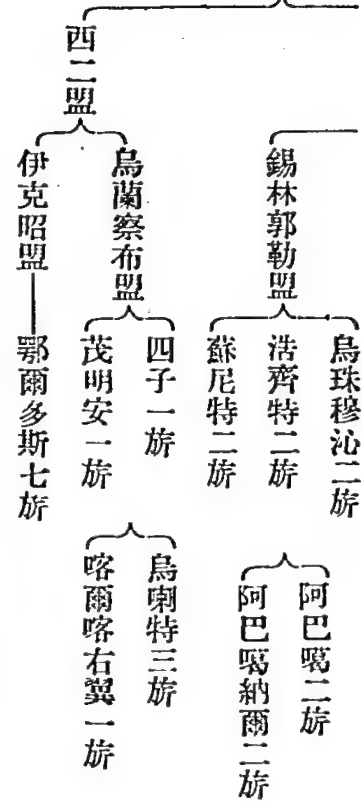 錫林郭勒盟
烏珠穆沁二旂
浩齊特二旂
蘇尼特二旂
阿巴噶二旂
阿巴噶納爾二旂
西二盟
烏蘭察布盟
四子一旂
茂明安一旂
烏喇特三旂
喀爾喀右翼一旂
伊克昭盟
鄂爾多斯七旂